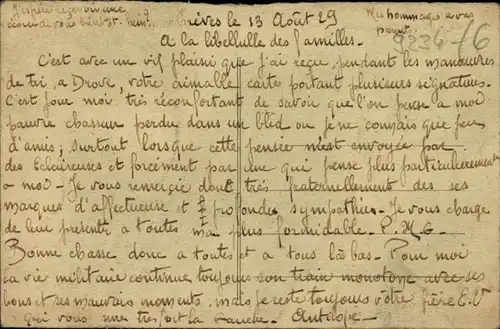 J'espère recevoir une
Trèves le 13 Août 29
Mes hommages à vos
parents.
9334/6
A la libellulle des familles.
C'est avec un vif plaisir que j'ai reçu, pendant les manœuvres
de tir, a Drove, votre aimable carte portant plusieurs signatures.
C'est pour moi très réconfortant de savoir que l'on pense a moi
pauvre chasseur perdu dans un bled ou je ne connais que peu
d'amis; surtout lorsque cette pensée m'est envoyée par
des Eclaireuses et forcément par une qui pense plus particulièrement
a moi - Je vous remercie donc très fraternellement des ses
marques d'affectueuse et profondes sympathies - Je vous charge
de leur présenter a toutes ma plus formidable. P.M.G.
Bonne chasse donc a toutes et a tous là bas. Pour moi
la vie militaire continue toujours son train monotone avec ses
bons et ses mauvais moments, mais je reste toujours votre frère
qui vous une très fort la Gauche. Antilope -